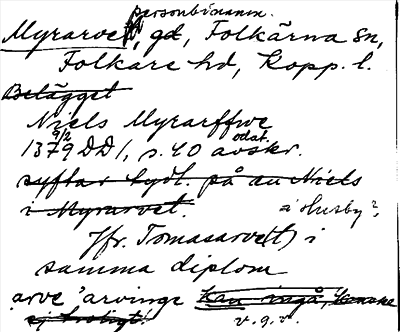 personbinamn.
Myrarvet, gd, Folkärna sn,
Folkare hd, Kopp. l.
Belägget
Niels Myrarffwe
9/2 odat.
1379 DD 1, s. 40 avskr.
syftar tydl. på en Niels
i Myrarvet. i Husby?,
Jfr. Tomasarve(t) i
samma diplom
arve 'arvinge kan ingå, kanske
ej troligt! v.g.v.